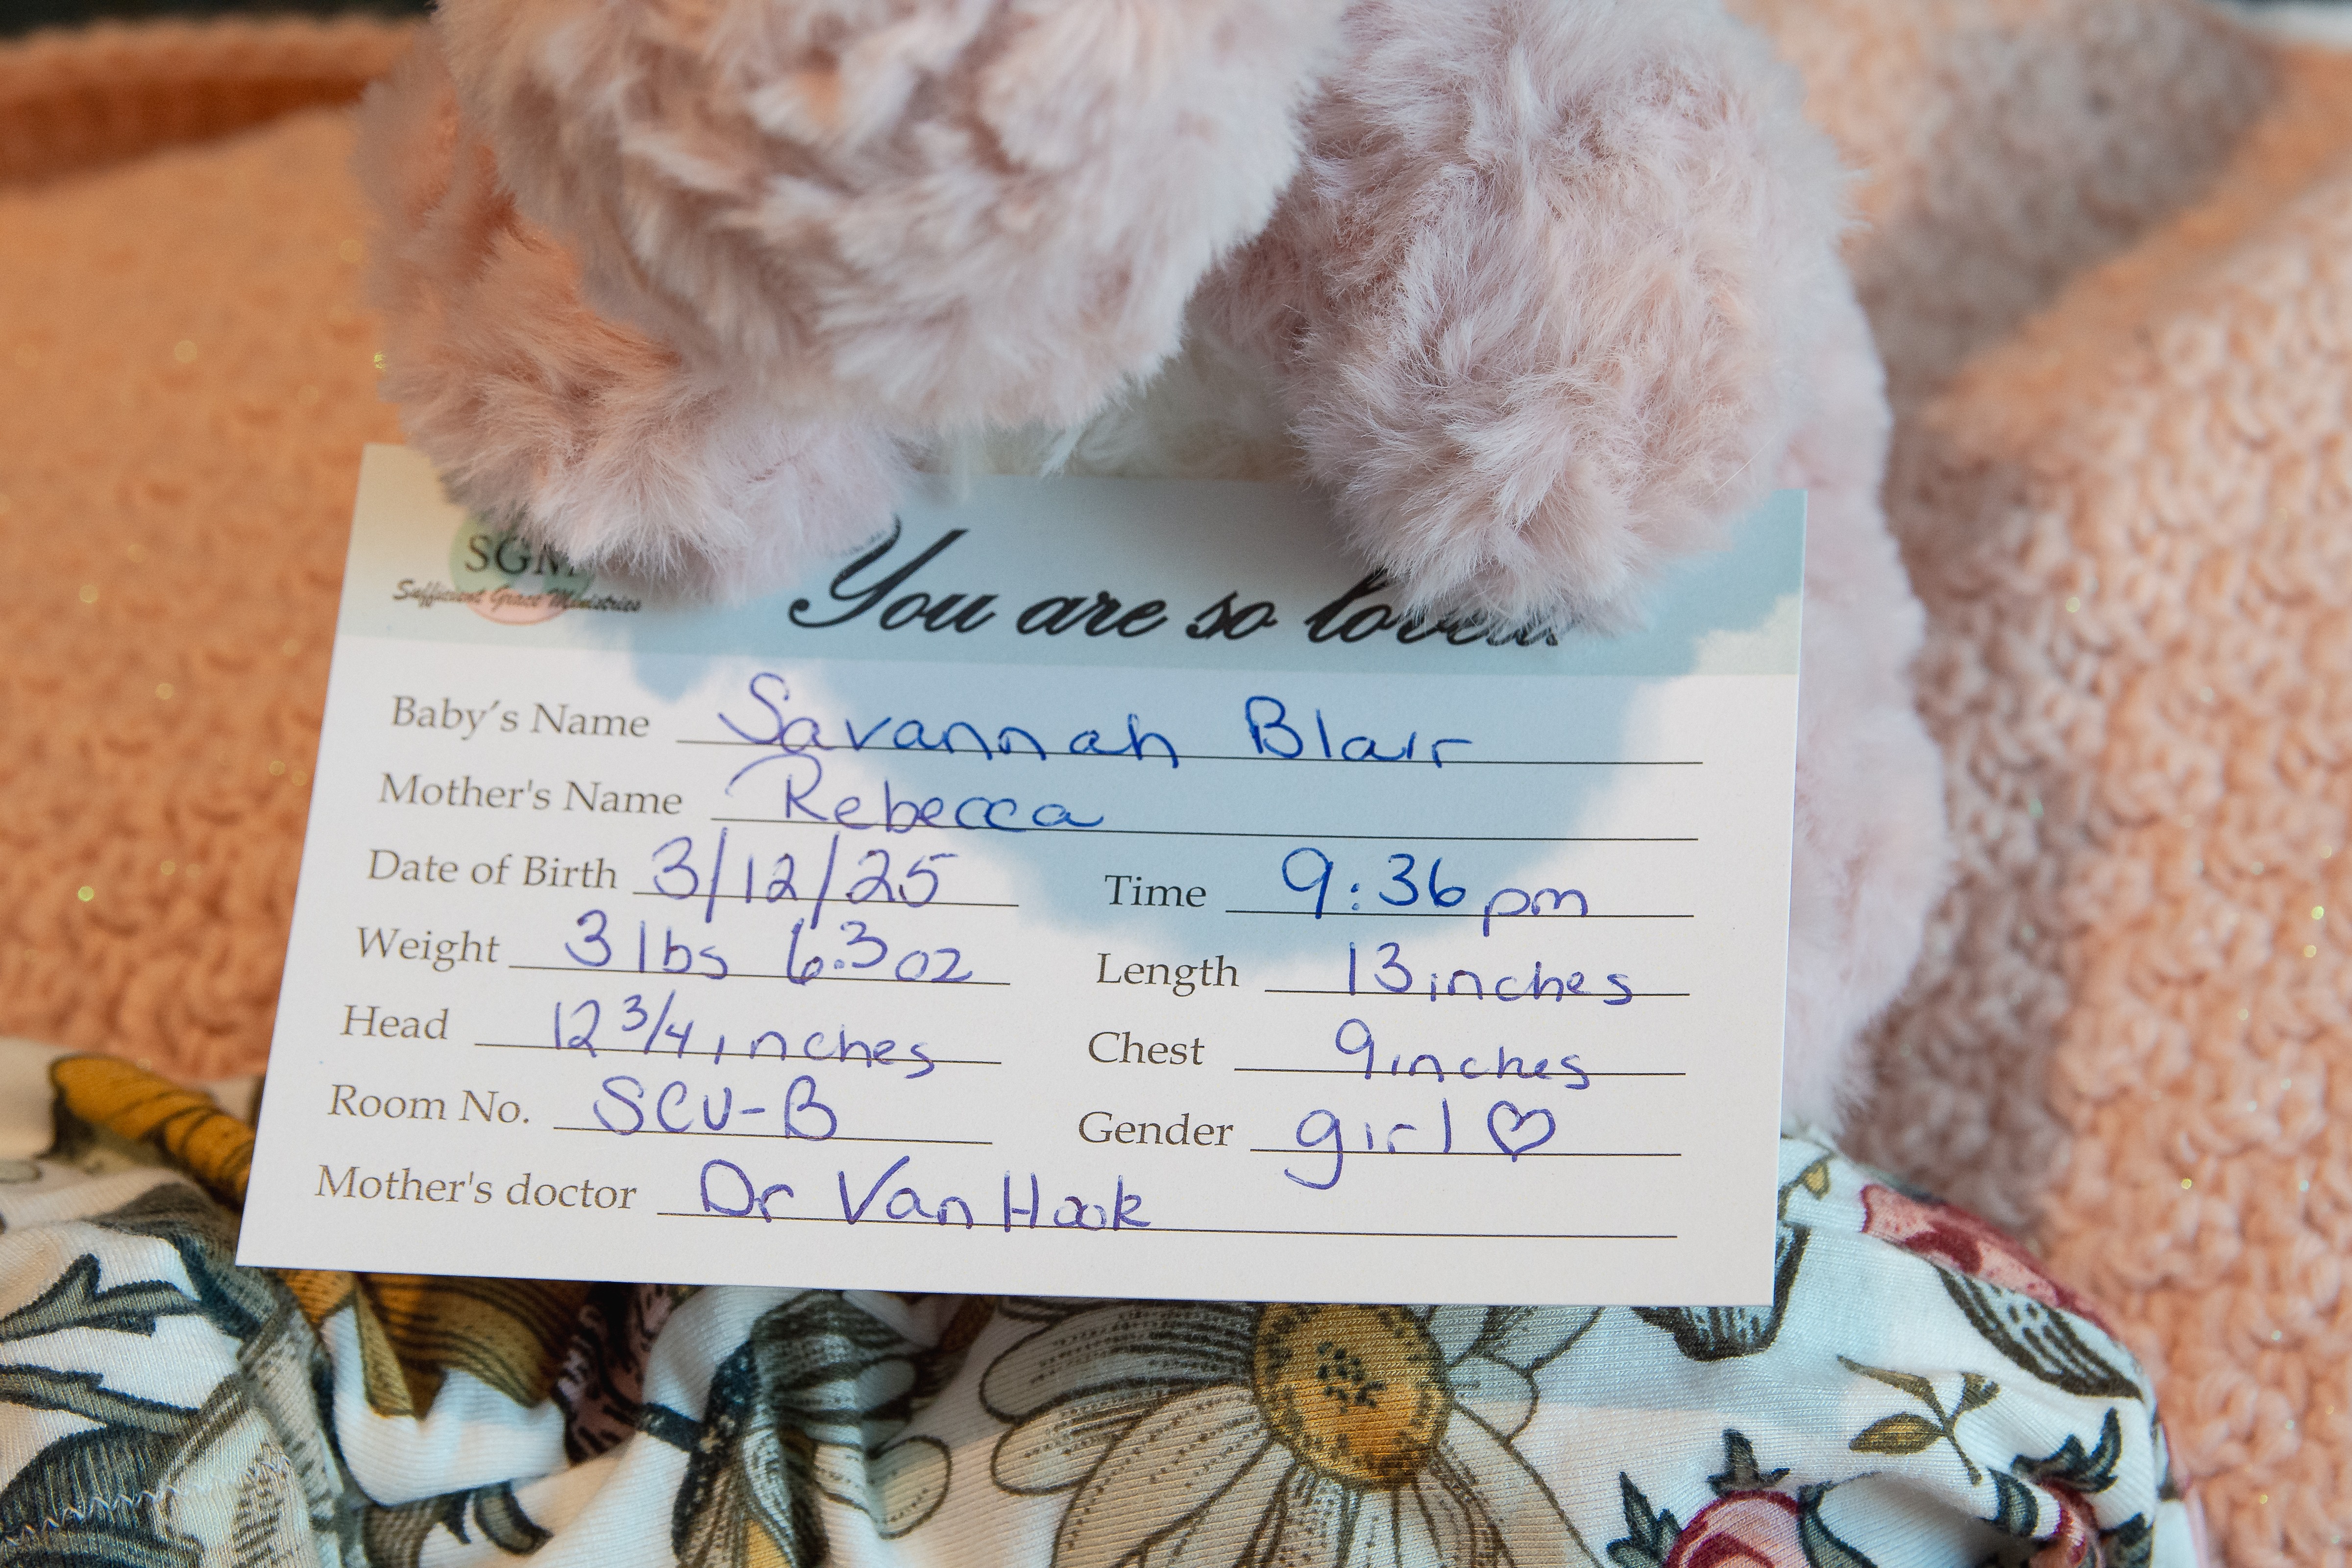 SGM
Sufficient Grace Ministries
You are so loved!
Baby's Name Savannah Blair
Mother's Name Rebecca
Date of Birth 3/12/25 Time 9:36 pm
Weight 3 lbs 6.3 oz Length 13 inches
Head 12 3/4 inches Chest 9 inches
Room No. SCU-B Gender girl ♡
Mother's doctor Dr Van Hook